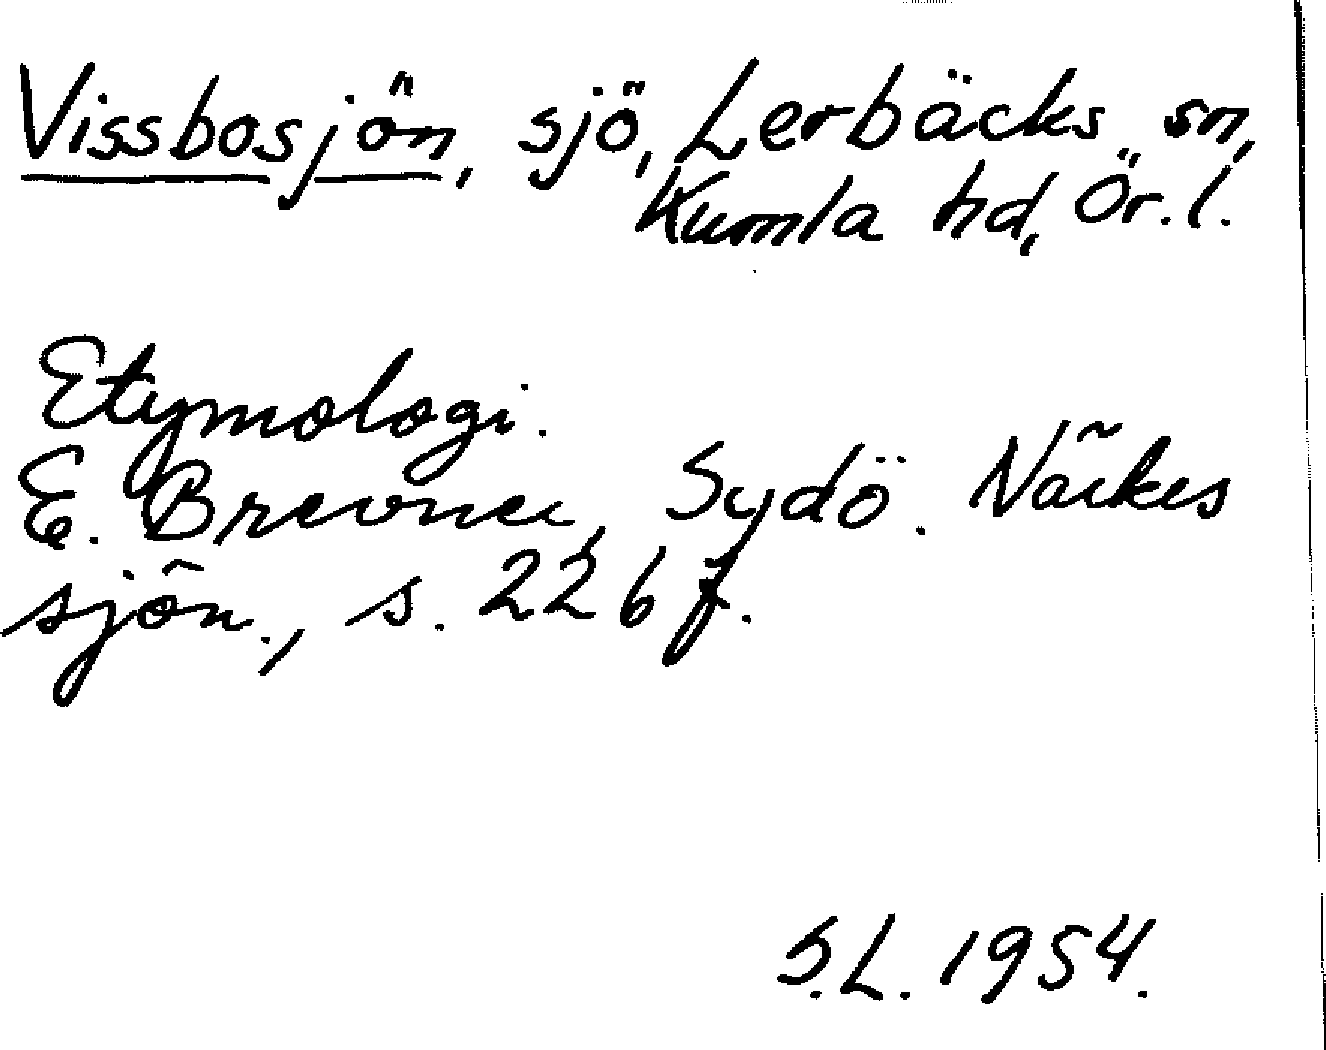 Vissbosjön, sjö, Lerbäcks sn,
Kumla hd, Ör. l.
Etymologi.
E. Brevner, Sydö. Närkes
sjön., s. 226 f.
S.L. 1954.